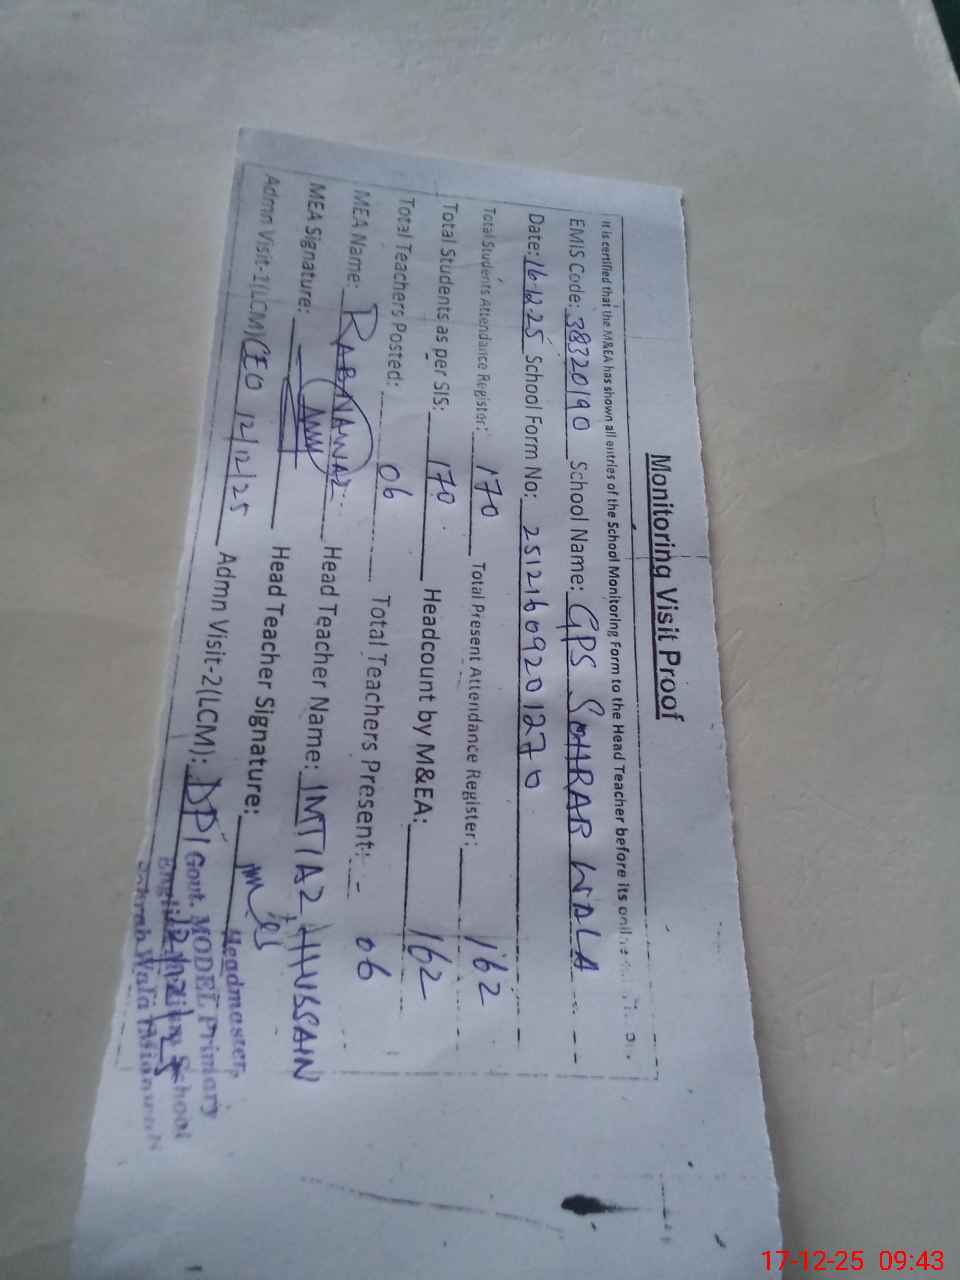 Monitoring Visit Proof
It is certified that the M&EA has shown all entries of the School Monitoring Form to the Head Teacher before its
EMIS Code: 38320190 School Name: GPS SOHRAB WALA
Date: 16-12-25 School Form No: 25121609201270
Total Students Attendance Register: 170 Total Present Attendance Register: 162
Total Students as per SIS: 170 Headcount by M&EA: 162
Total Teachers Posted: 06 Total Teachers Present: 06
MEA Name: RABNAWAZ Head Teacher Name: IMTIAZ HUSSAIN
MEA Signature: Head Teacher Signature:
Admn Visit-1(LCM) CEO 12/12/25 Admn Visit-2(LCM): DPI
Headmaster,
Govt. MODEL Primary
School
Wala Mianwali
17-12-25 09:43